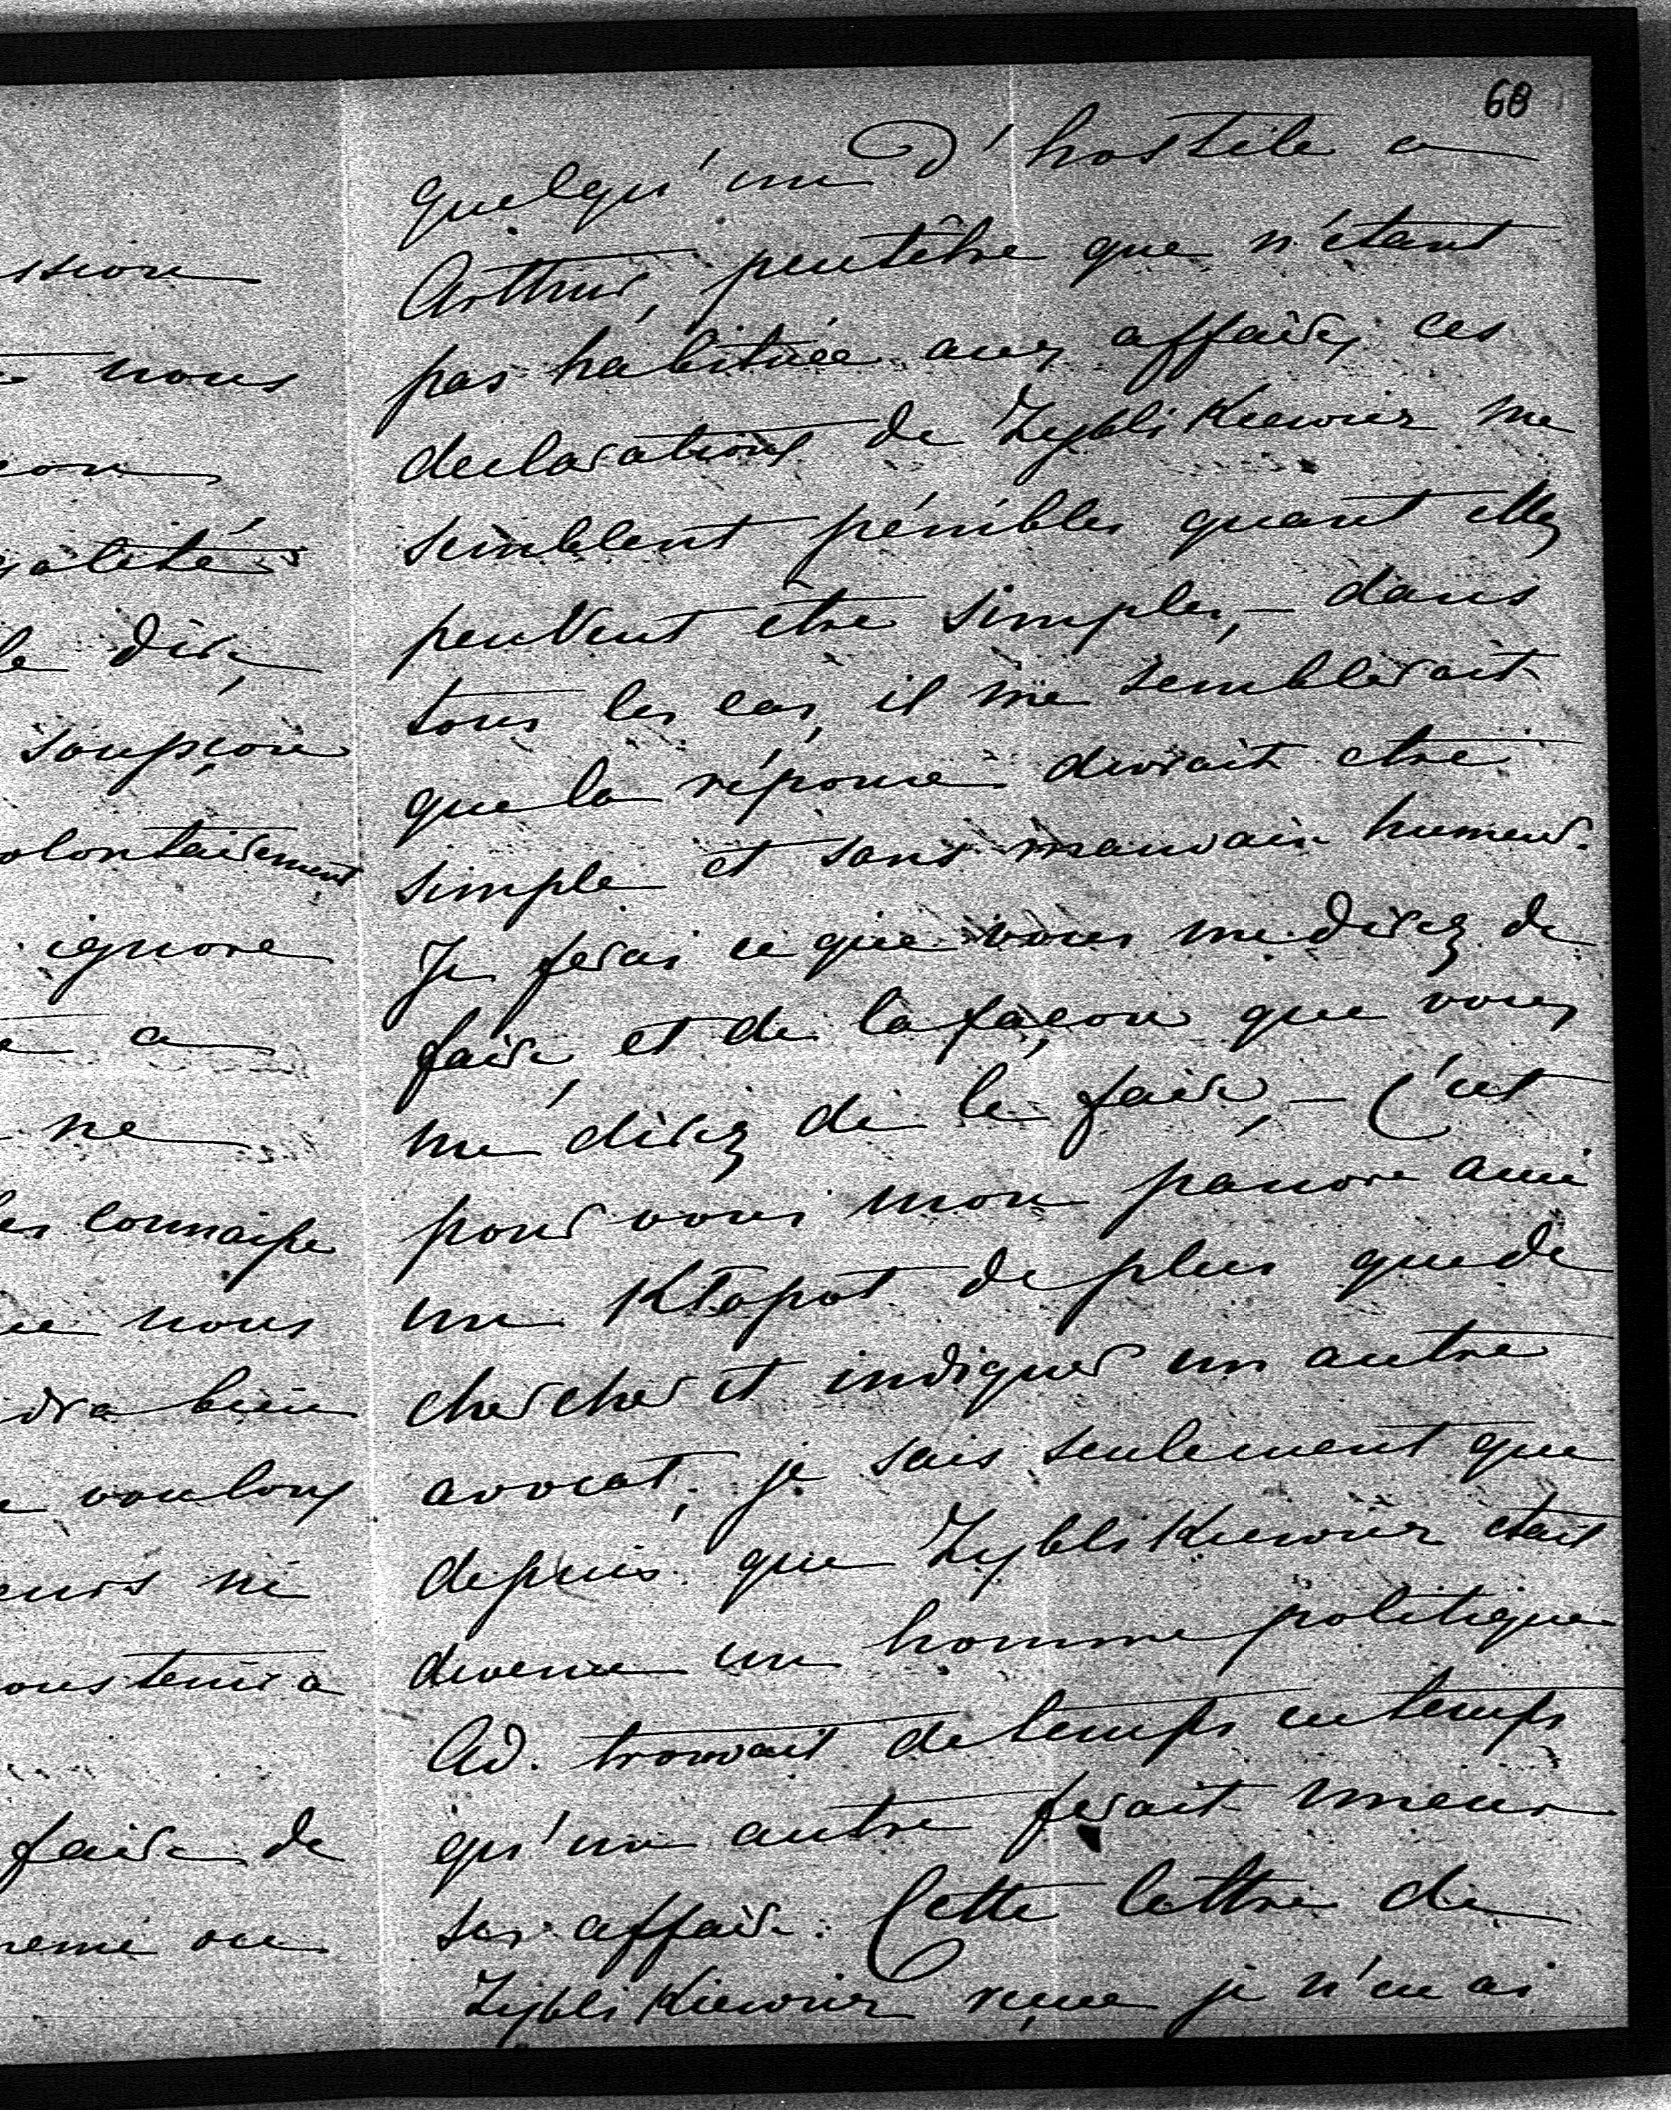 ssion
nous
çon
galités
le dire,
soupçon
olontairement
ignore
a
ne
les connaisse
nous
dra bien
voulons
eurs ni
ous tenir a
faire de
ou
68
quelqu'un d'hostile a
Arthur, peutêtre que n'étant
pas habituée aux affaires, ces
declarations de Zyblikiewicz me
semblent pénibles quant elles
peuvent être simples, — dans
tous les cas, il me semblerait
que la réponse devrait etre
simple et sans mauvais humeur.
Je ferai ce que vous me direz de
faire, et de la façon que vous
me direz de le faire, — C'est
pour vous mon pauvre ami
un Kłopot de plus que de
chercher et indiquer un autre
avocat, je sais seulement que
depuis que Zyblikiewicz etait
devenu un homme politique
Ad. trouvait de temps en temps
qu'un autre ferait mieux
ses affaire. Cette lettre de
Zyblikiewicz reçue je n'en ai